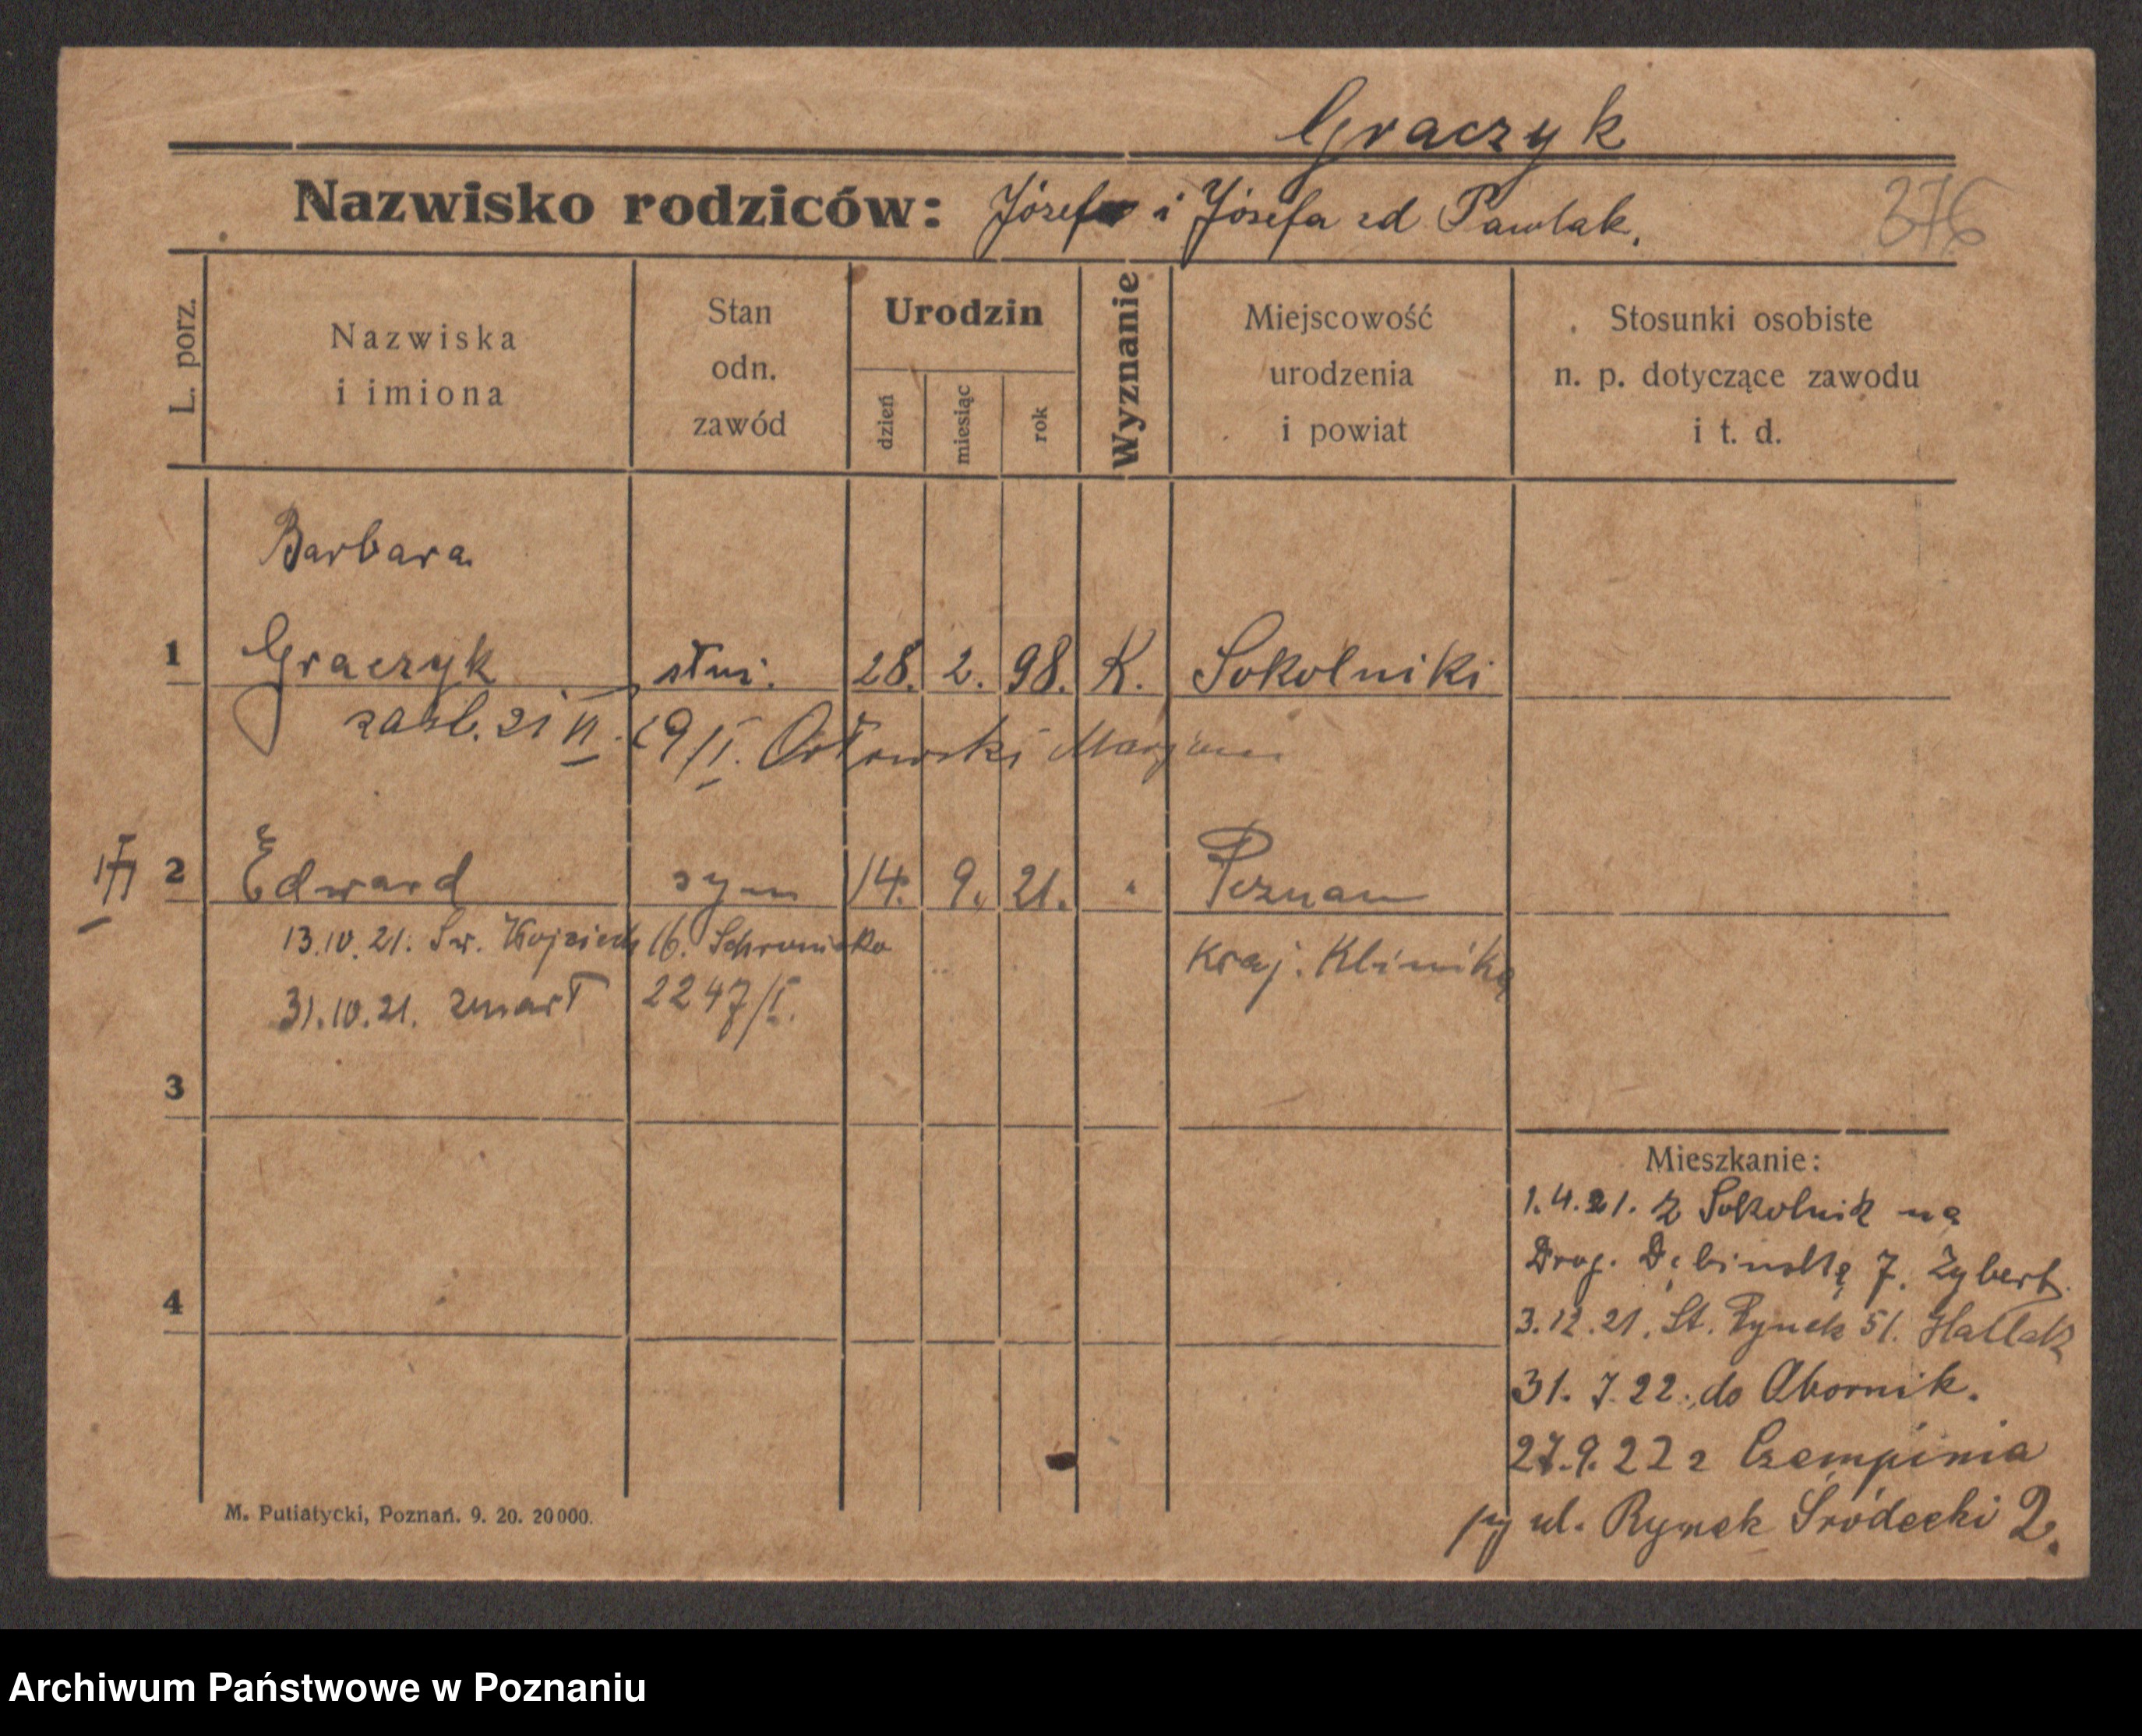 Graczyk
Nazwisko rodziców: Józef i Józefa zd Pawlak.
376
L. porz.
Nazwiska
i imiona
Stan
odn.
zawód
Urodzin
dzień
miesiąc
rok
Wyznanie
Miejscowość
urodzenia
i powiat
Stosunki osobiste
n. p. dotyczące zawodu
i t. d.
Barbara
1 Graczyk służ. 28. 2. 98. K. Sokolniki
zaśl. 21 VI. 29/I. Orłowski Marjan
2 Edward syn 14. 9. 21. " Poznań
13.10.21. Św. Wojciech 16. Schronisko Kraj. Klinika
31.10.21. zmarł 2247/I.
3
4
Mieszkanie:
1.4.21. z Sokolnik na
Drog. Dębinską 7. Zybert.
3.12.21. St. Rynek 51. Hallak
31.7.22. do Obornik.
27.9.22 z Czempinia
py ul. Rynek Śródecki 2.
M. Putiatycki, Poznań. 9. 20. 20000.
Archiwum Państwowe w Poznaniu